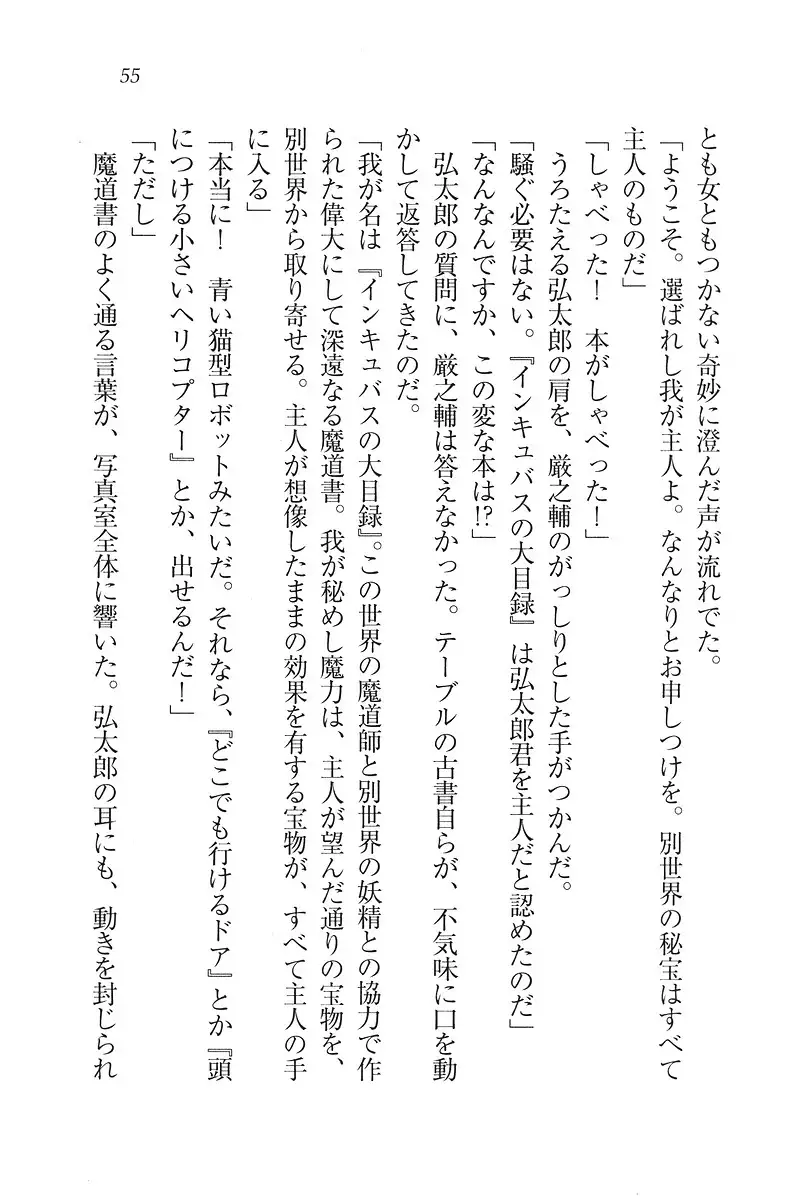 55
とも女ともつかない奇妙に澄んだ声が流れでた。
「ようこそ。選ばれし我が主人よ。なんなりとお申しつけを。別世界の秘宝はすべて
主人のものだ」
「しゃべった！　本がしゃべった！」
うろたえる弘太郎の肩を、厳之輔のがっしりとした手がつかんだ。
「騒ぐ必要はない。『インキュバスの大目録』は弘太郎君を主人だと認めたのだ」
「なんなんですか、この変な本は!?」
弘太郎の質問に、厳之輔は答えなかった。テーブルの古書自らが、不気味に口を動
かして返答してきたのだ。
「我が名は『インキュバスの大目録』。この世界の魔道師と別世界の妖精との協力で作
られた偉大にして深遠なる魔道書。我が秘めし魔力は、主人が望んだ通りの宝物を、
別世界から取り寄せる。主人が想像したままの効果を有する宝物が、すべて主人の手
に入る」
「本当に！　青い猫型ロボットみたいだ。それなら、『どこでも行けるドア』とか『頭
につける小さいヘリコプター』とか、出せるんだ！」
「ただし」
魔道書のよく通る言葉が、写真室全体に響いた。弘太郎の耳にも、動きを封じられ